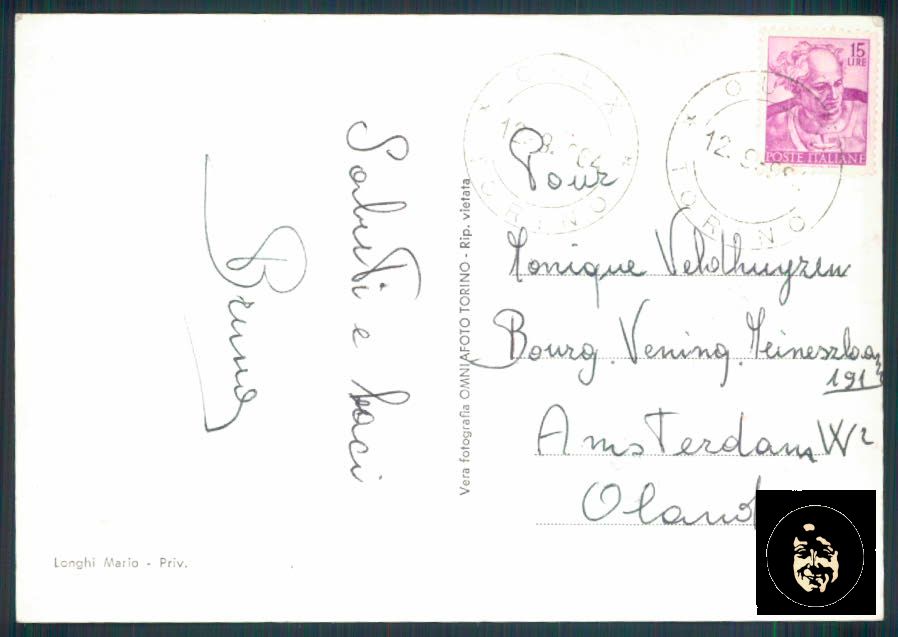 Saluti e baci
Bruno
Vera fotografia OMNIAFOTO TORINO - Rip. vietata
Longhi Mario - Priv.
15
LIRE
POSTE ITALIANE
OULX
TORINO
OULX
12.
TORINO
Pour
Monique Veldhuyzen
Bourg. Vening. Meineszlaan
191
Amsterdam W2
Oland